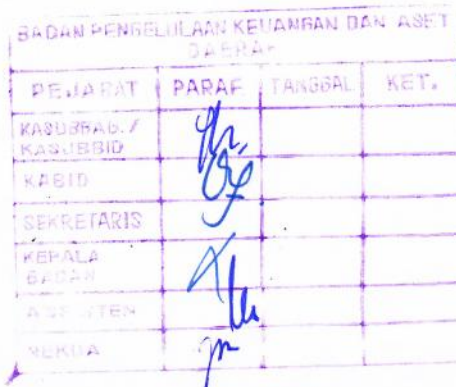 BADAN PENGELOLAAN KEUANGAN DAN ASET
DAERAH
PEJABAT PARAF TANGGAL KET.
KASUBBAG. /
KASUBBID
KABID
SEKRETARIS
KEPALA
BADAN
ASISTEN
SEKDA